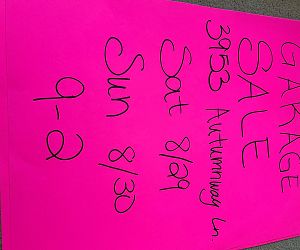 GARAGE
SALE
3953 Autumnway Ln
Sat 8/29
Sun 8/30
9-2